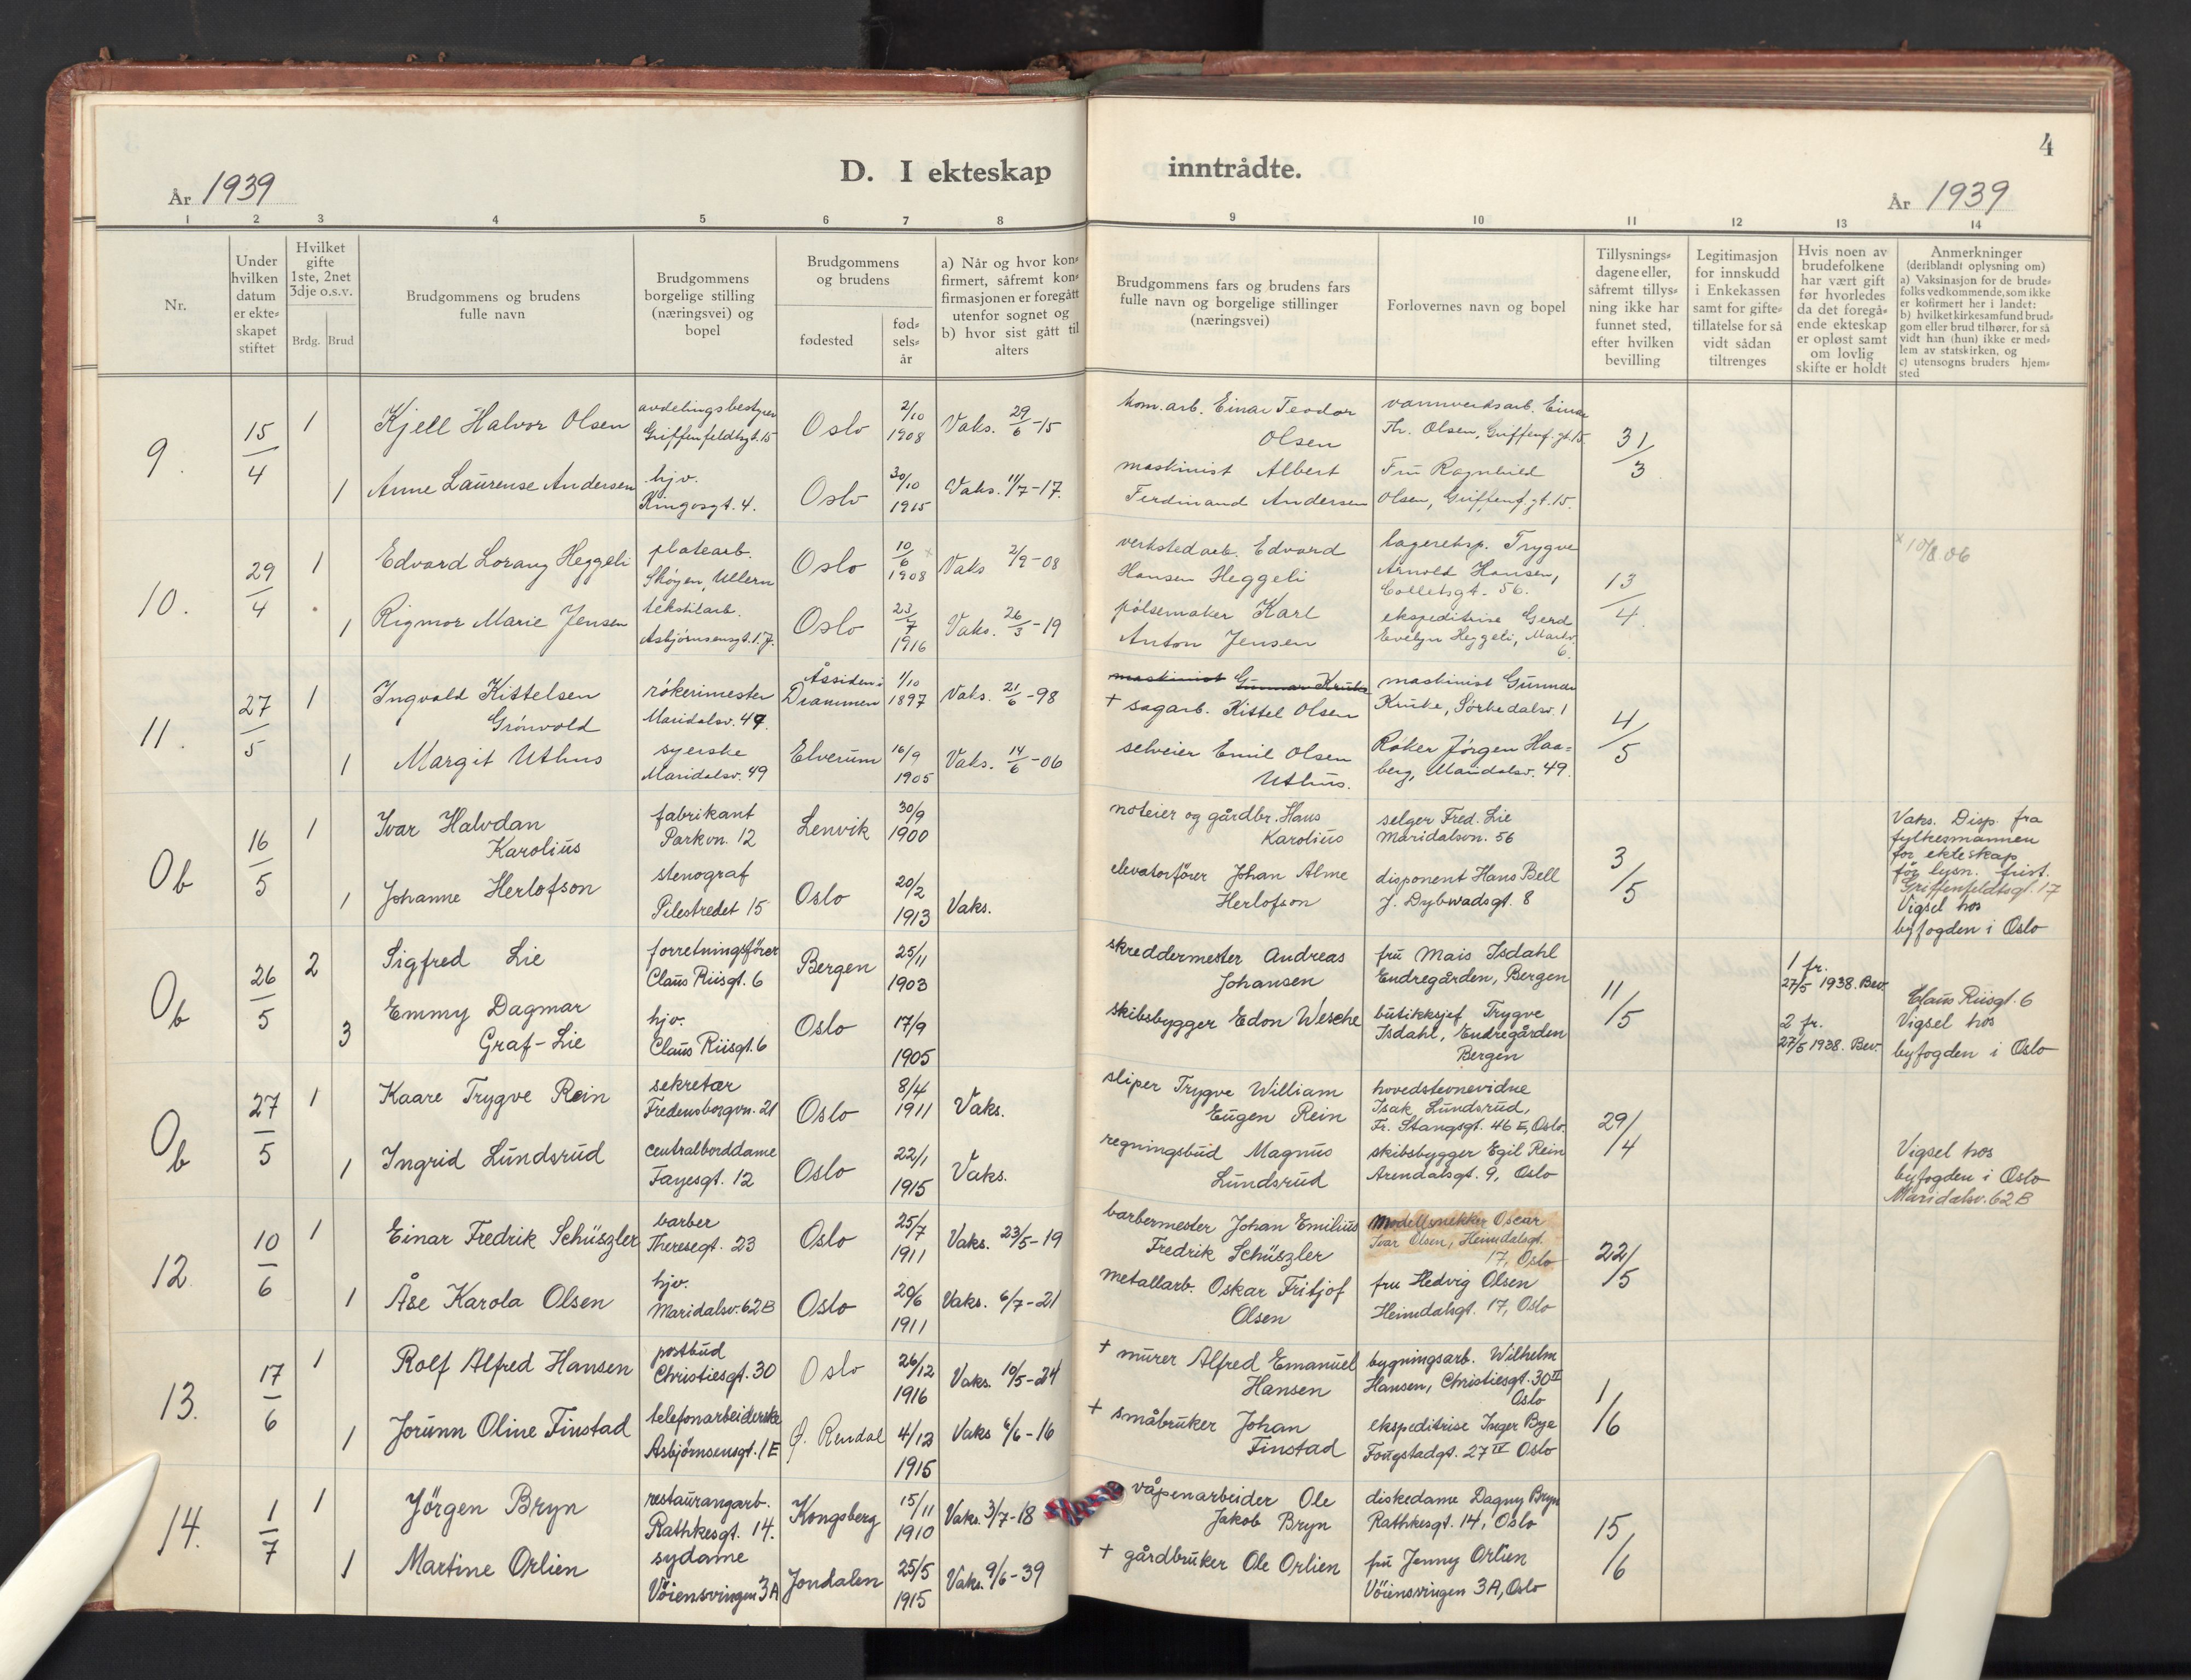 4
D. I ekteskap inntrådte.
År 1939
År 1939
1 2 3 4 5 6 7 8 9 10 11 12 13 14
Nr.
Under hvilken datum er ekteskapet stiftet
Hvilket gifte 1ste, 2net 3dje o.s.v.
Brdg. Brud
Brudgommens og brudens fulle navn
Brudgommens borgelige stilling (næringsvei) og bopel
Brudgommens og brudens
fødested
fødselsår
a) Når og hvor konfirmert, såfremt konfirmasjonen er foregått utenfor sognet og b) hvor sist gått til alters
Brudgommens fars og brudens fars fulle navn og borgelige stillinger (næringsvei)
Forlovernes navn og bopel
Tillysningsdagene eller, såfremt tillysning ikke har funnet sted, efter hvilken bevilling
Legitimasjon for innskudd i Enkekassen samt for giftetillatelse for så vidt sådan tiltrenges
Hvis noen av brudefolkene har vært gift før hvorledes da det foregående ekteskap er opløst samt om lovlig skifte er holdt
Anmerkninger (deriblandt oplysning om) a) Vaksinasjon for de brudefolks vedkommende, som ikke er kofirmert her i landet: b) hvilket kirkesamfund brudgom eller brud tilhører, for så vidt han (hun) ikke er medlem av statskirken, og c) utensogns bruders hjemsted
9. 15/4 1 Kjell Halvor Olsen
avdelingsbestyrer
Griffenfeldtsgt. 15
Oslo 2/10 1908 Vaks. 29/6-15
kom.arb. Einar Teodor
Olsen
vannverksarb. Einar
Th. Olsen, Griffenf.gt. 15.
31/3
1 Anne Laurense Andersen
hjv.
Kingosgt. 4.
Oslo 30/10 1915 Vaks. 11/7-17.
maskinist Albert
Ferdinand Andersen
Fru Ragnhild
Olsen, Griffenf.gt. 15.
10. 29/4 1 Edvard Lorang Heggeli
platearb.
Skøyen, Ullern
Oslo 10/6 1908 × Vaks 2/9-08
verkstedarb. Edvard
Hansen Heggeli
lagereksp. Trygve
Arnold Hansen,
Colletsgt. 56.
13/4
× 10/8 06
1 Rigmor Marie Jensen
tekstilarb.
Asbjørnsensgt. 1.7.
Oslo 23/7 1916 Vaks. 26/3-19
pølsemaker Karl
Anton Jensen
ekspeditrise Gerd
Evelyn Heggeli,
6.
11. 27/5 1 Ingvald Kittelsen
Grönvold
rökerimester
Maridalsv. 49.
Åssiden i
Drammen 1/10 1897 Vaks. 21/6-98
maskinist Gunnar Kruke
+ sagarb. Kittel Olsen
maskinist Gunnar
Kruke, Sørkedalsv. 1
4/5
1 Margit Uthus
syerske
Maridalsv. 49
Elverum 16/9 1905 Vaks. 14/6-06
selveier Emil Olsen
Uthus.
Røker Jørgen Haa=
berg, Maridalsv. 49.
Ob 16/5 1 Ivar Halvdan
Karolius
fabrikant
Parkvn. 12
Lenvik 30/9 1900
noteier og gårdbr. Hans
Karolius
selger Fred. Lie
Maridalsvn. 56
3/5
Vaks. Disp. fra
fylkesmannen
for ekteskap
før lysn. frist.
Griffenfeldtsgt. 17
Vigsel hos
byfogden i Oslo
1 Johanne Herlofson
stenograf
Pilestredet 15
Oslo 20/2 1913 Vaks.
elevatorfører Johan Alme
Herlofson
disponent Hans Bell
J. Dybwadsgt. 8
Ob 26/5 2 Sigfred Lie
forretningsfører
Claus Riisgt. 6
Bergen 25/11 1903
skreddermester Andreas
Johansen
fru Mais Isdahl
Endregården, Bergen
11/5
1 fr.
27/5 1938. Bev.
Claus Riisgt. 6
Vigsel hos
byfogden i Oslo
3 Emmy Dagmar
Graf-Lie
hjv.
Claus Riisgt. 6
Oslo 17/9 1905
skibsbygger Edon Wesche
butikksjef Trygve
Isdahl, Endregården
Bergen
2 fr.
27/5 1938. Bev.
Ob 27/5 1 Kaare Trygve Rein
sekretær
Fredensborgvn. 21
Oslo 8/4 1911 Vaks.
sliper Trygve William
Eugen Rein
hovedstevnevidne
Isak Lundsrud,
Fr. Stangsgt. 46 I, Oslo.
29/4
1 Ingrid Lundsrud
centralborddame
Fayesgt. 12
Oslo 22/1 1915 Vaks.
regningsbud Magnus
Lundsrud
skibsbygger Egil Rein
Arendalsgt. 9, Oslo
Vigsel hos
byfogden i Oslo
Maridalsv. 62B
12. 10/6 1 Einar Fredrik Schüszler
barber
Theresegt. 23
Oslo 25/7 1911 Vaks. 23/5-19
barbermester Johan Emilius
Fredrik Schüszler
Modellsnekker Oscar
Ivar Olsen, Heimdalsgt.
17, Oslo
22/5
1 Åse Karola Olsen
hjv.
Maridalsv. 62B
Oslo 20/6 1911 Vaks. 6/7-21
metallarb. Oskar Fritjof
Olsen
fru Hedvig Olsen
Heimdalsgt. 17, Oslo
13. 17/6 1 Rolf Alfred Hansen
postbud
Christiesgt. 30
Oslo 26/12 1916 Vaks. 10/5-24
+ murer Alfred Emanuel
Hansen
bygningsarb. Wilhelm
Hansen, Christiesgt. 30 II
Oslo
1/6
1 Jorunn Oline Finstad
telefonarbeiderske
Asbjørnsensgt. 1 E
Ø. Rendal 4/12 1915 Vaks 6/6-16
+ småbruker Johan
Finstad
ekspeditrise Inger Bye
Fougstadgt. 27 IV Oslo
14. 1/7 1 Jörgen Bryn
restaurangarb.
Rathkesgt. 14.
Kongsberg 15/11 1910 Vaks. 3/7-18
våpenarbeider Ole
Jakob Bryn
diskedame Dagny Bryn
Rathkesgt. 14, Oslo
15/6
1 Martine Orlien
sydame
Vöiensvingen 3A
Jondalen 25/5 1915 Vaks. 9/6-39
+ gårdbruker Ole Orlien
fru Jenny Orlien
Vöiensvingen 3A, Oslo